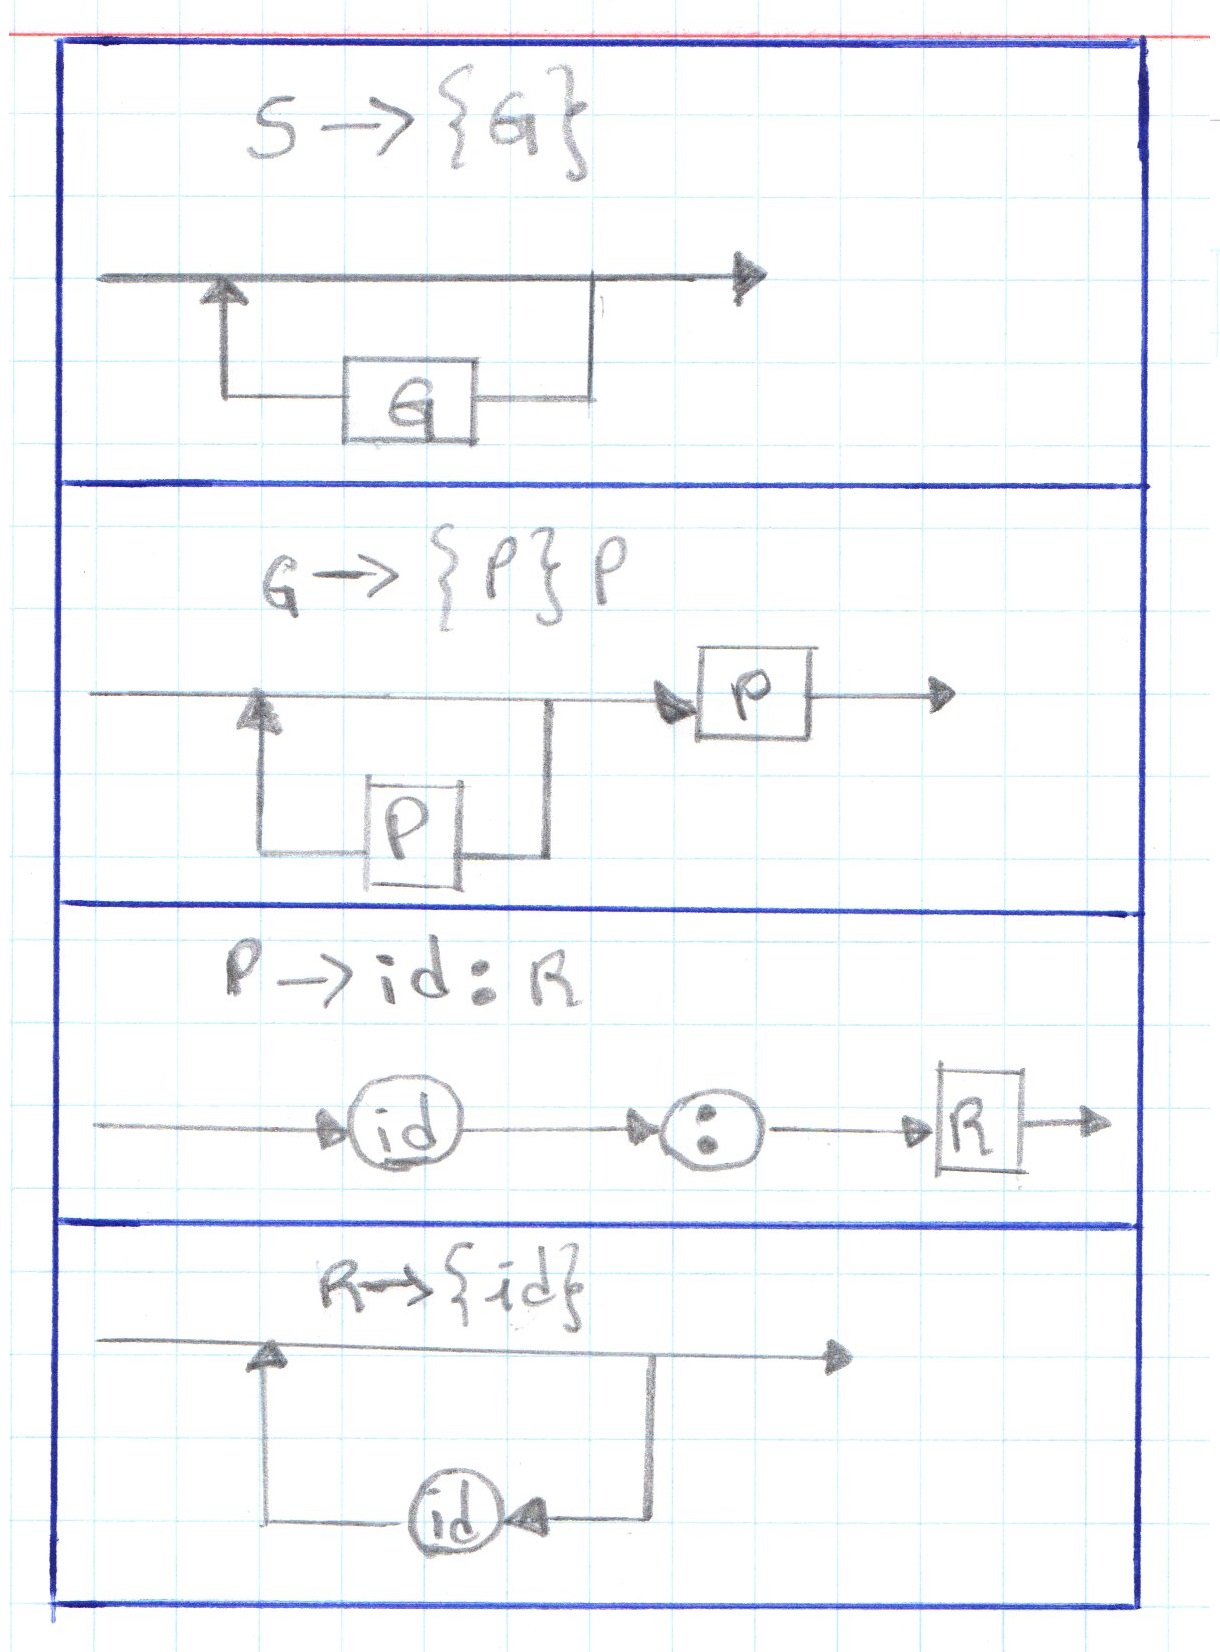 S → {G}
G
G → {P} P
P
P
P → id : R
id : R
R → {id}
id